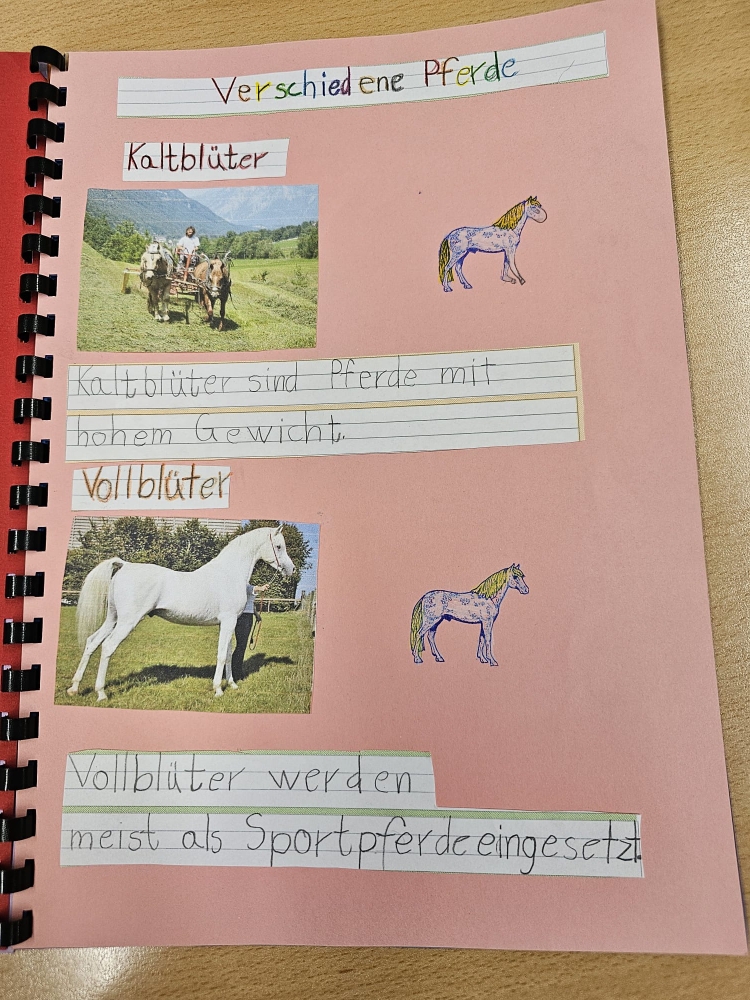 Verschiedene Pferde
Kaltblüter
Kaltblüter sind Pferde mit
hohem Gewicht.
Vollblüter
Vollblüter werden
meist als Sportpferde eingesetzt.